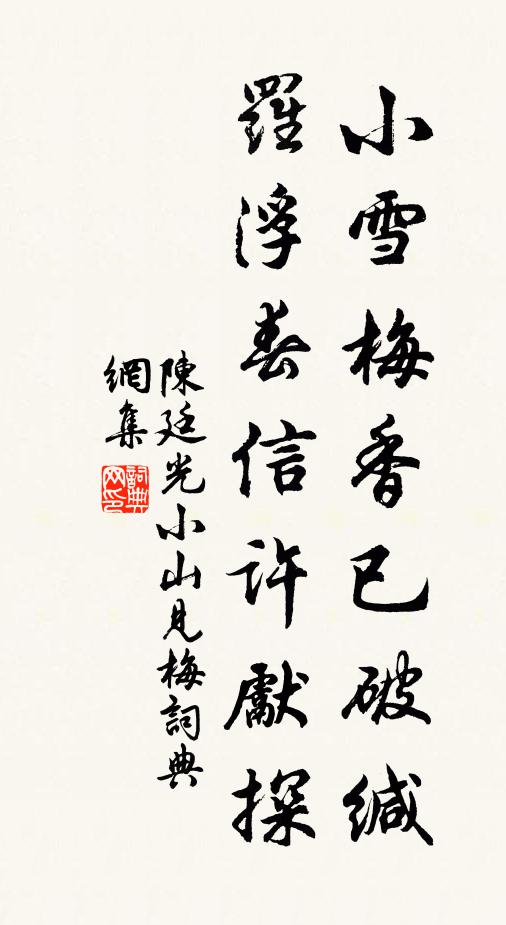 小雪梅香已破缄
羅浮春信許獻探
陳廷光小山見梅詞典
網集
詞典網印